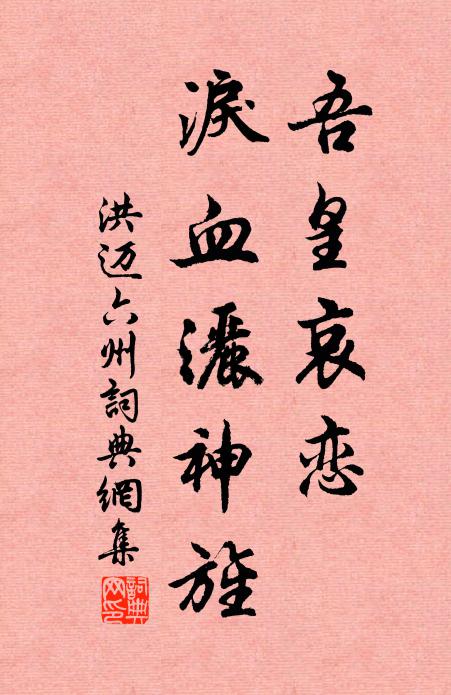 吾皇哀恋
淚血灑神旌
洪迈六州詞典網集
詞典网印